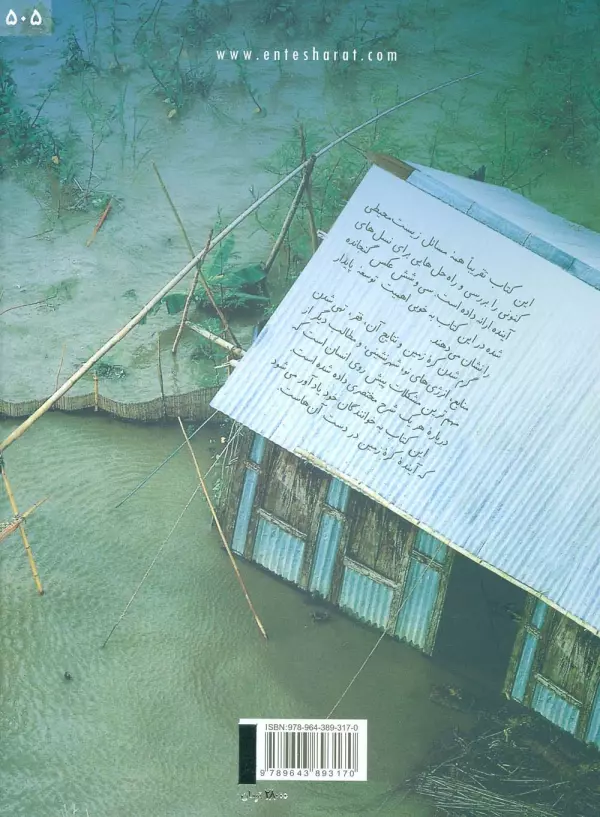 ۵۰۵
www.entesharat.com
این کتاب تقریباً همه مسائل زیست‌محیطی
کنونی را بررسی و راه‌حل‌هایی برای نسل‌های
آینده ارائه داده است. سی و شش عکس گنجانده
شده در این کتاب به خوبی اهمیت توسعه پایدار
را نشان می‌دهند.
گرم شدن کره زمین و نتایج آن، فقر، تهی شدن
منابع انرژی‌های نو، شهرنشینی و مطالب دیگر از
مهم‌ترین مشکلات پیش روی انسان است که
درباره هر یک شرح مختصری داده شده است.
این کتاب به خوانندگان خود یادآور می‌شود
که آینده کره زمین در دست آن‌هاست.
ISBN: 978-964-389-317-0
9 789643 893170
تومان